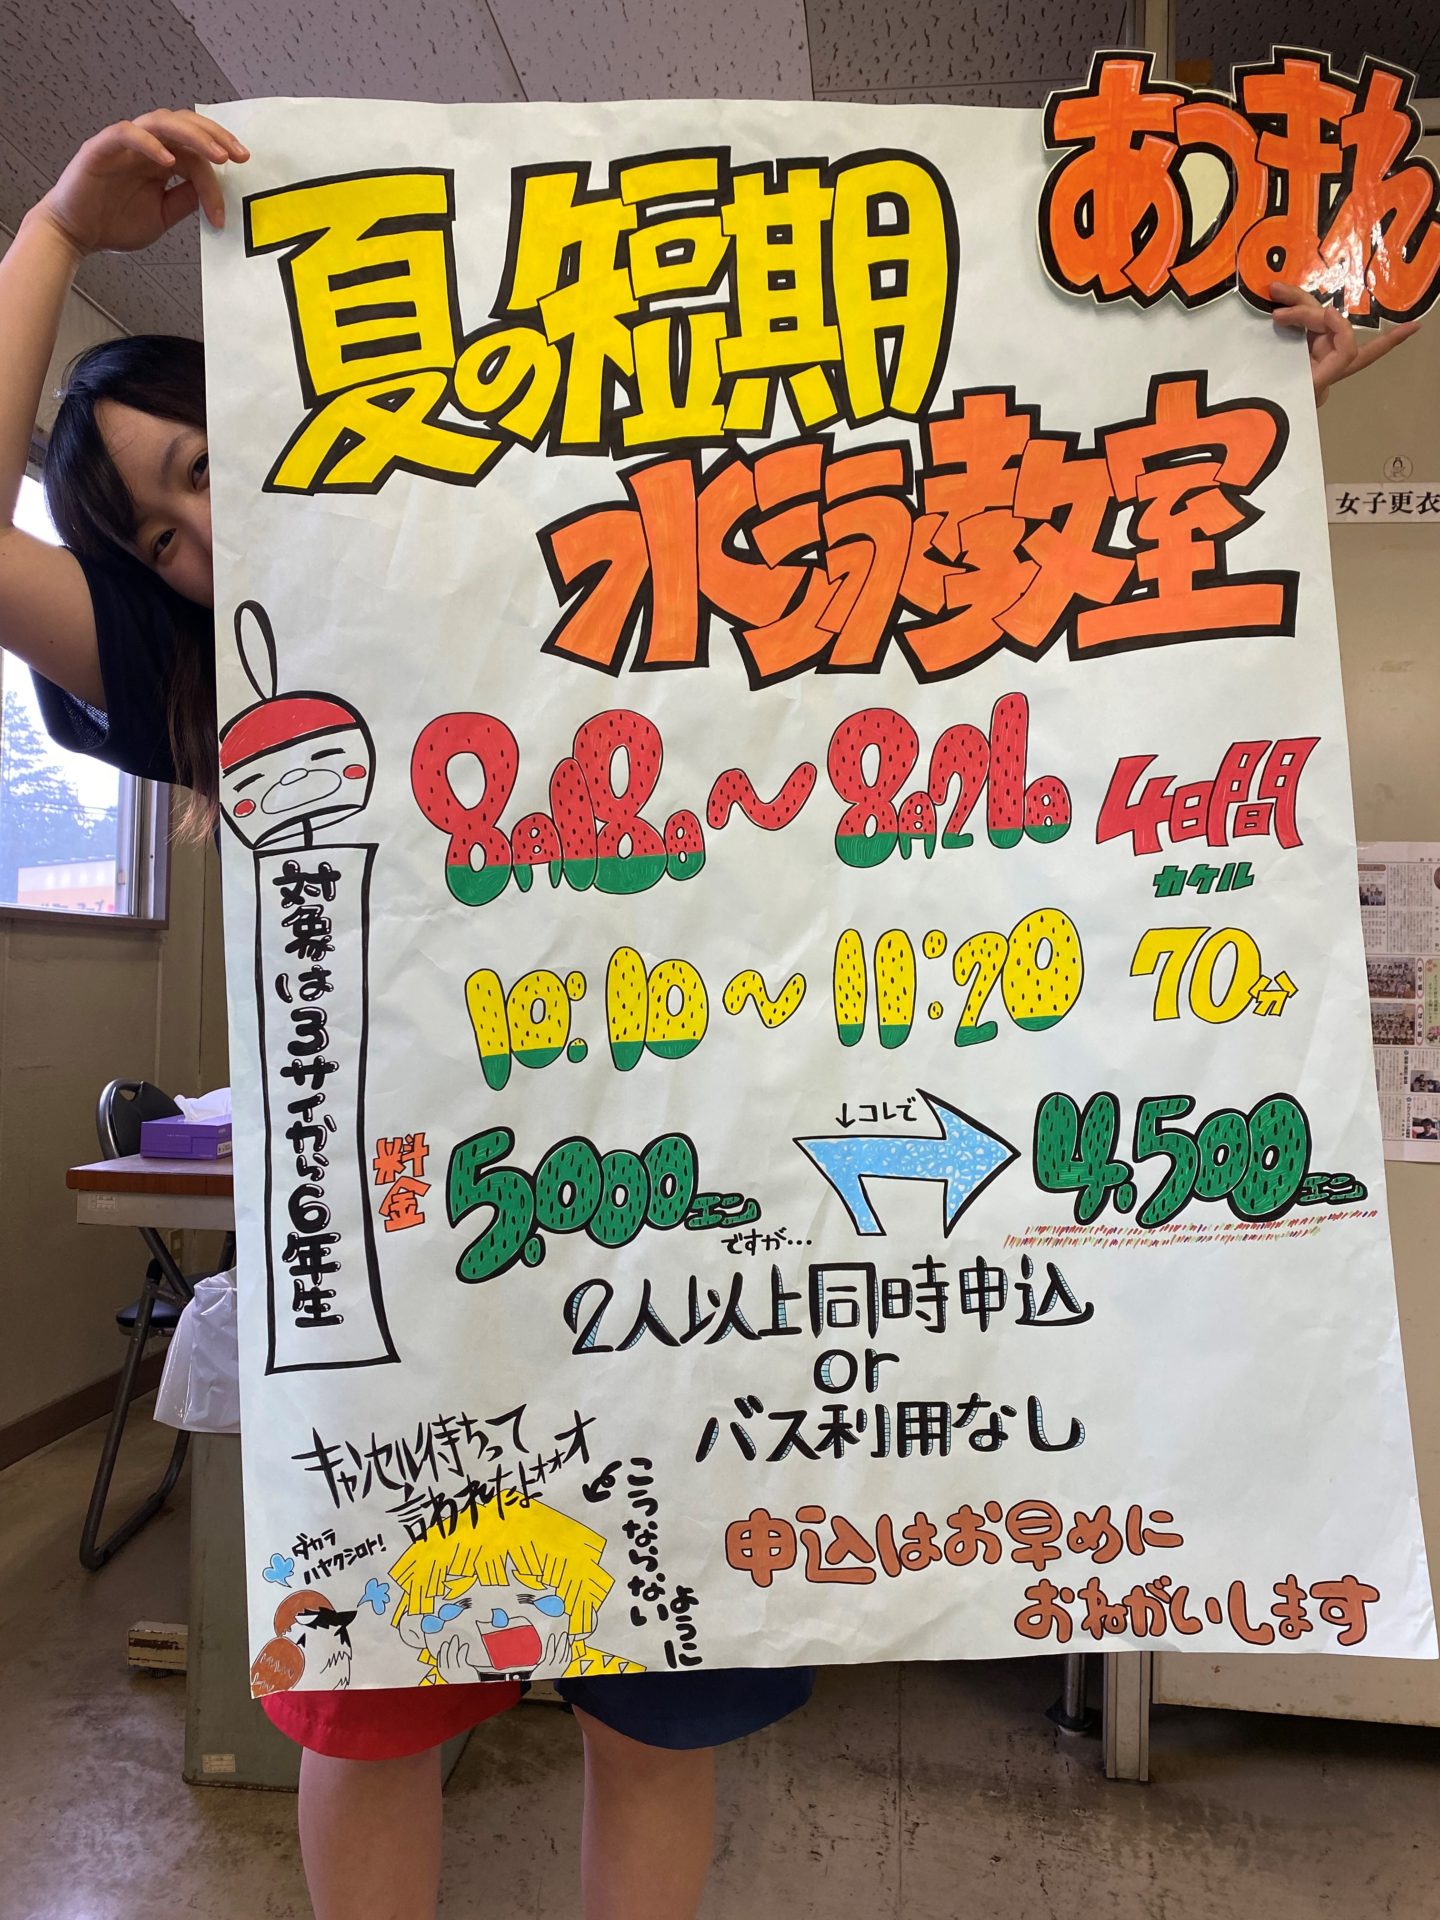 あつまれ
夏の短期
水泳教室
8月18日～8月21日 4日間
カケル
10:10～11:20 70分
料金 5,000エン ですが… ↓コレで 4,500エン
2人以上同時申込
or
バス利用なし
申込はお早めに
おねがいします
対象は3サイから6年生
キャンセル待ちって
言われたよォォオ
こうならない
ように
ダカラ
ハヤクシロト!
女子更衣